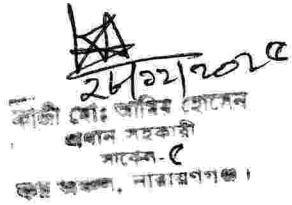 ২৮/১২/২০২৫
কাজী মোঃ আরিফ হোসেন
প্রধান সহকারী
সার্কেল-৫
কর অঞ্চল, নারায়ণগঞ্জ।